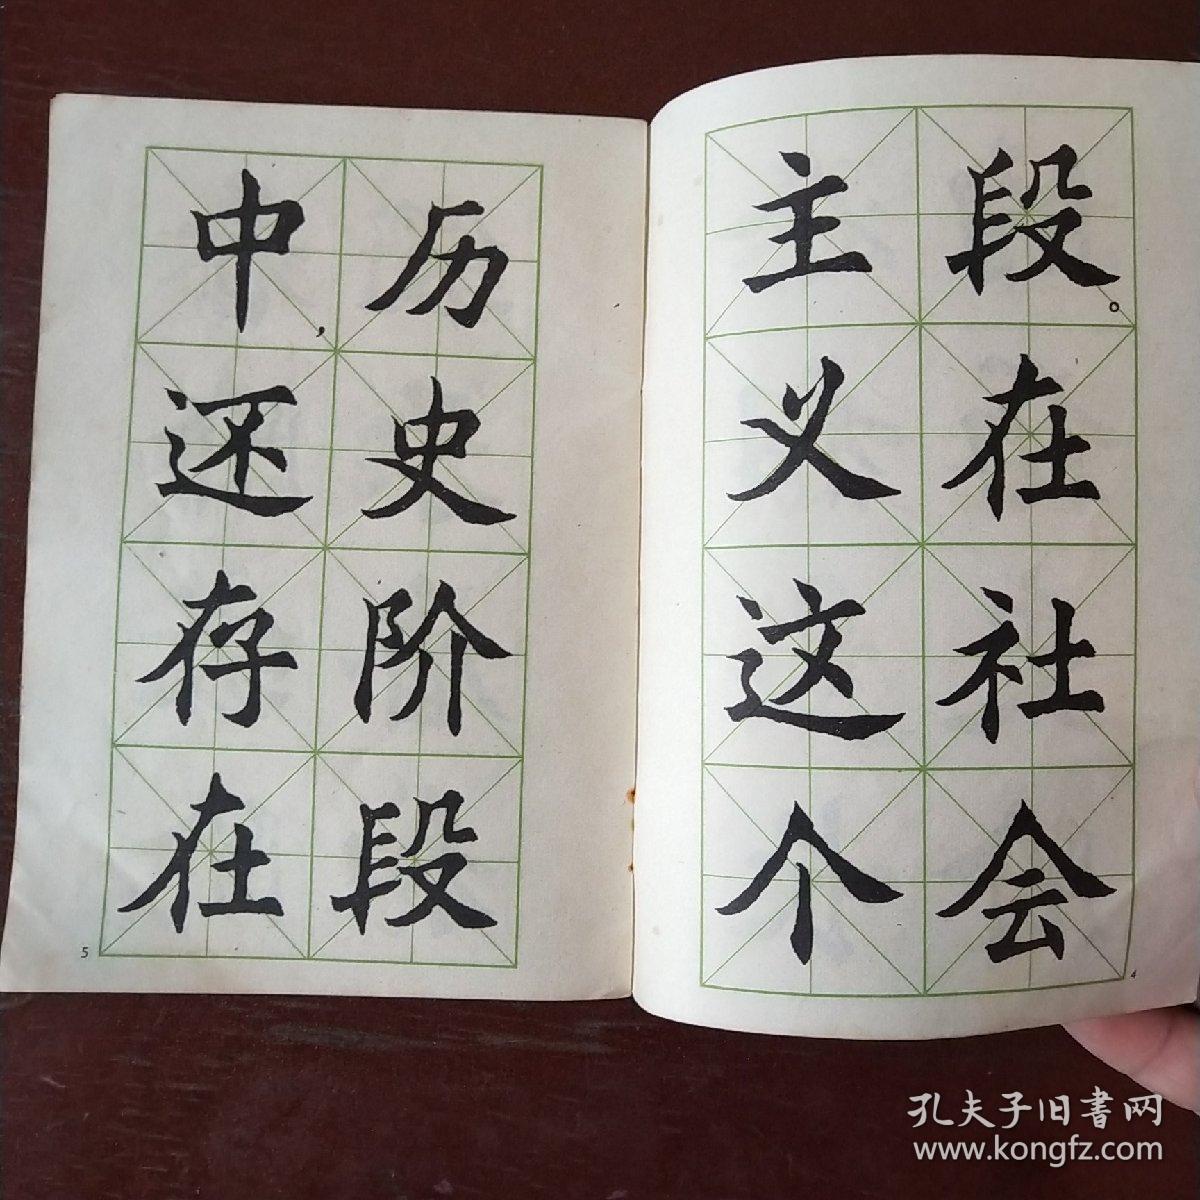 段。在社会
主义这个
4
历史阶段
中，还存在
5
孔夫子旧書网
www.kongfz.com